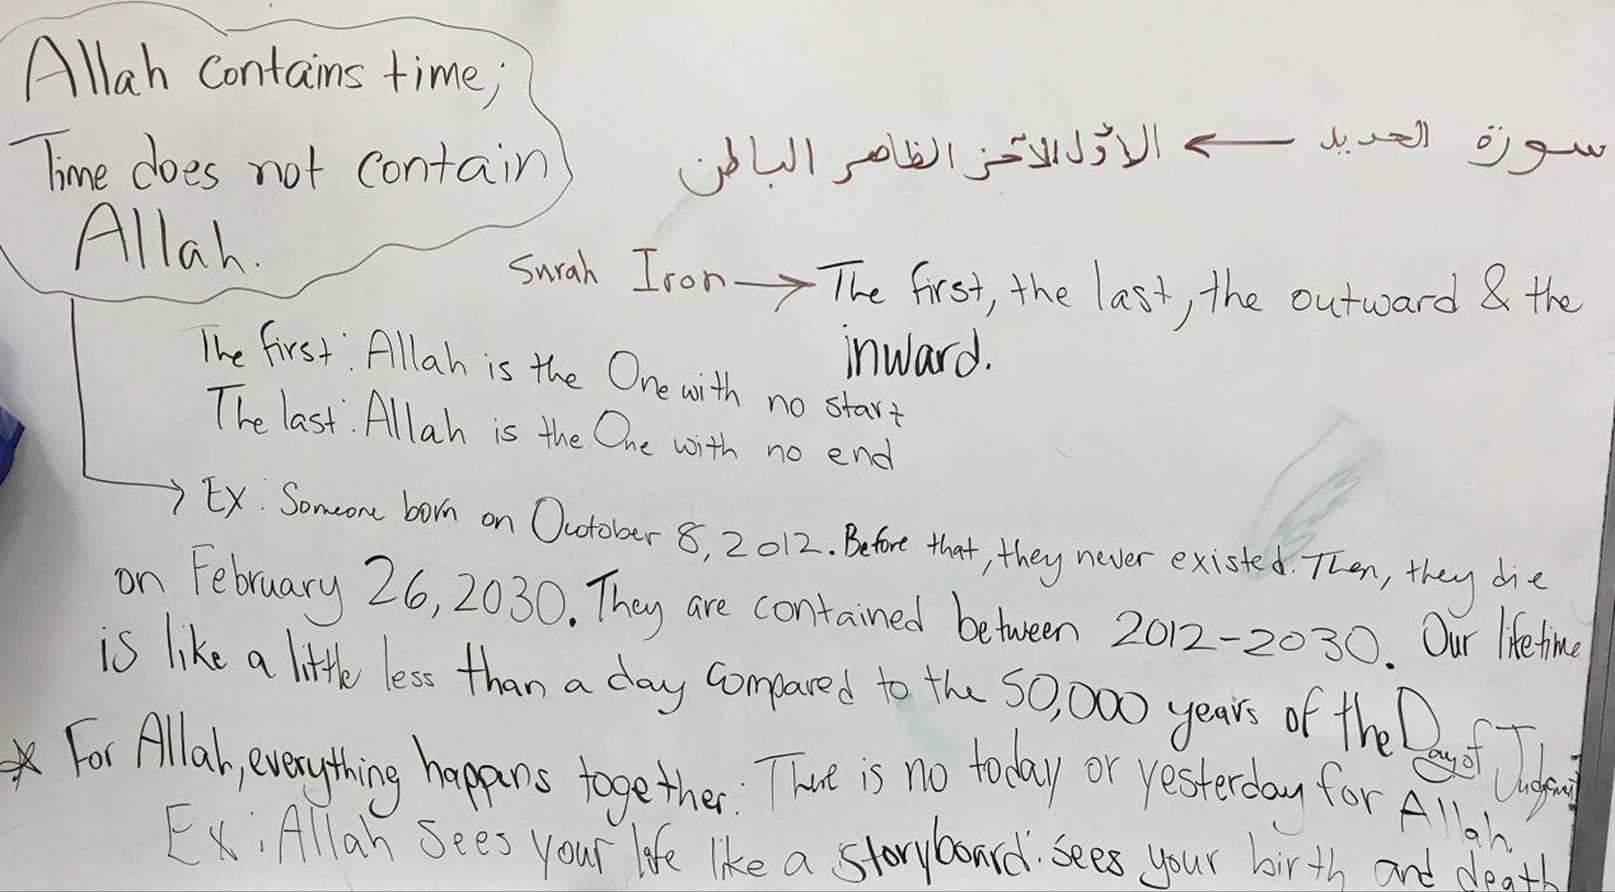 Allah contains time;
Time does not contain
Allah.
سورة الحديد ← الأوّل الآخر الظاهر الباطن
Surah Iron → The first, the last, the outward & the
inward.
The first: Allah is the One with no start
The last: Allah is the One with no end
→ Ex: Someone born on Ocotober 8, 2012. Before that, they never existed. Then, they die
on February 26, 2030. They are contained between 2012-2030. Our lifetime
is like a little less than a day compared to the 50,000 years of the Day of Judgment
* For Allah, everything happens together. There is no today or yesterday for Allah.
Ex: Allah sees your life like a storyboard: sees your birth and death